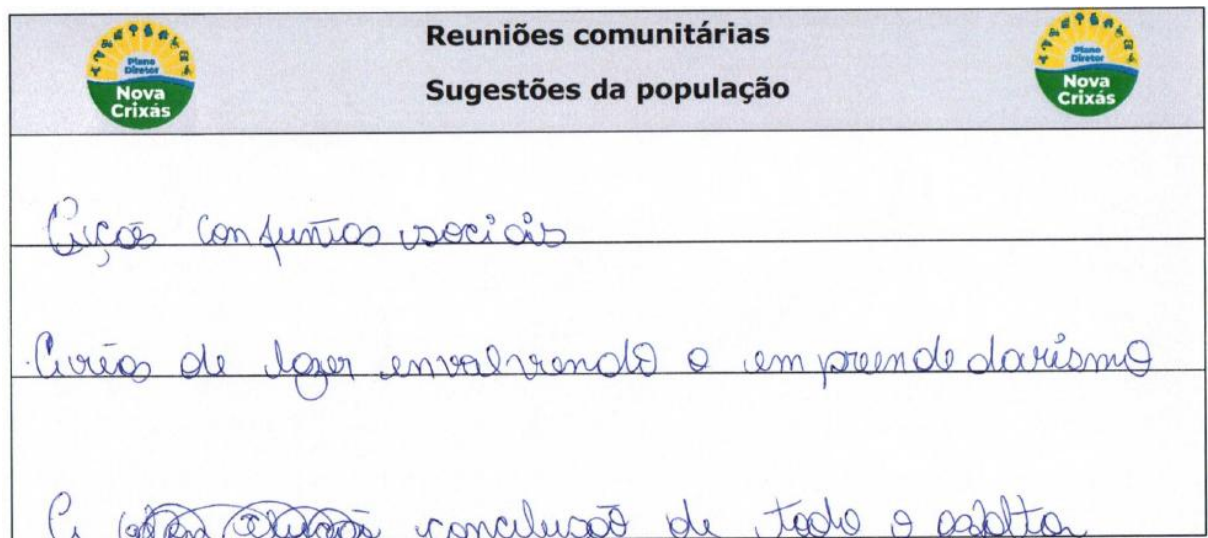 Plano
Diretor
Nova
Crixás
Reuniões comunitárias
Sugestões da população
Plano
Diretor
Nova
Crixás
Ações conjuntas sociais
Áreas de lazer envolvendo o empreendedorismo
A conclusão de todo o asfalto